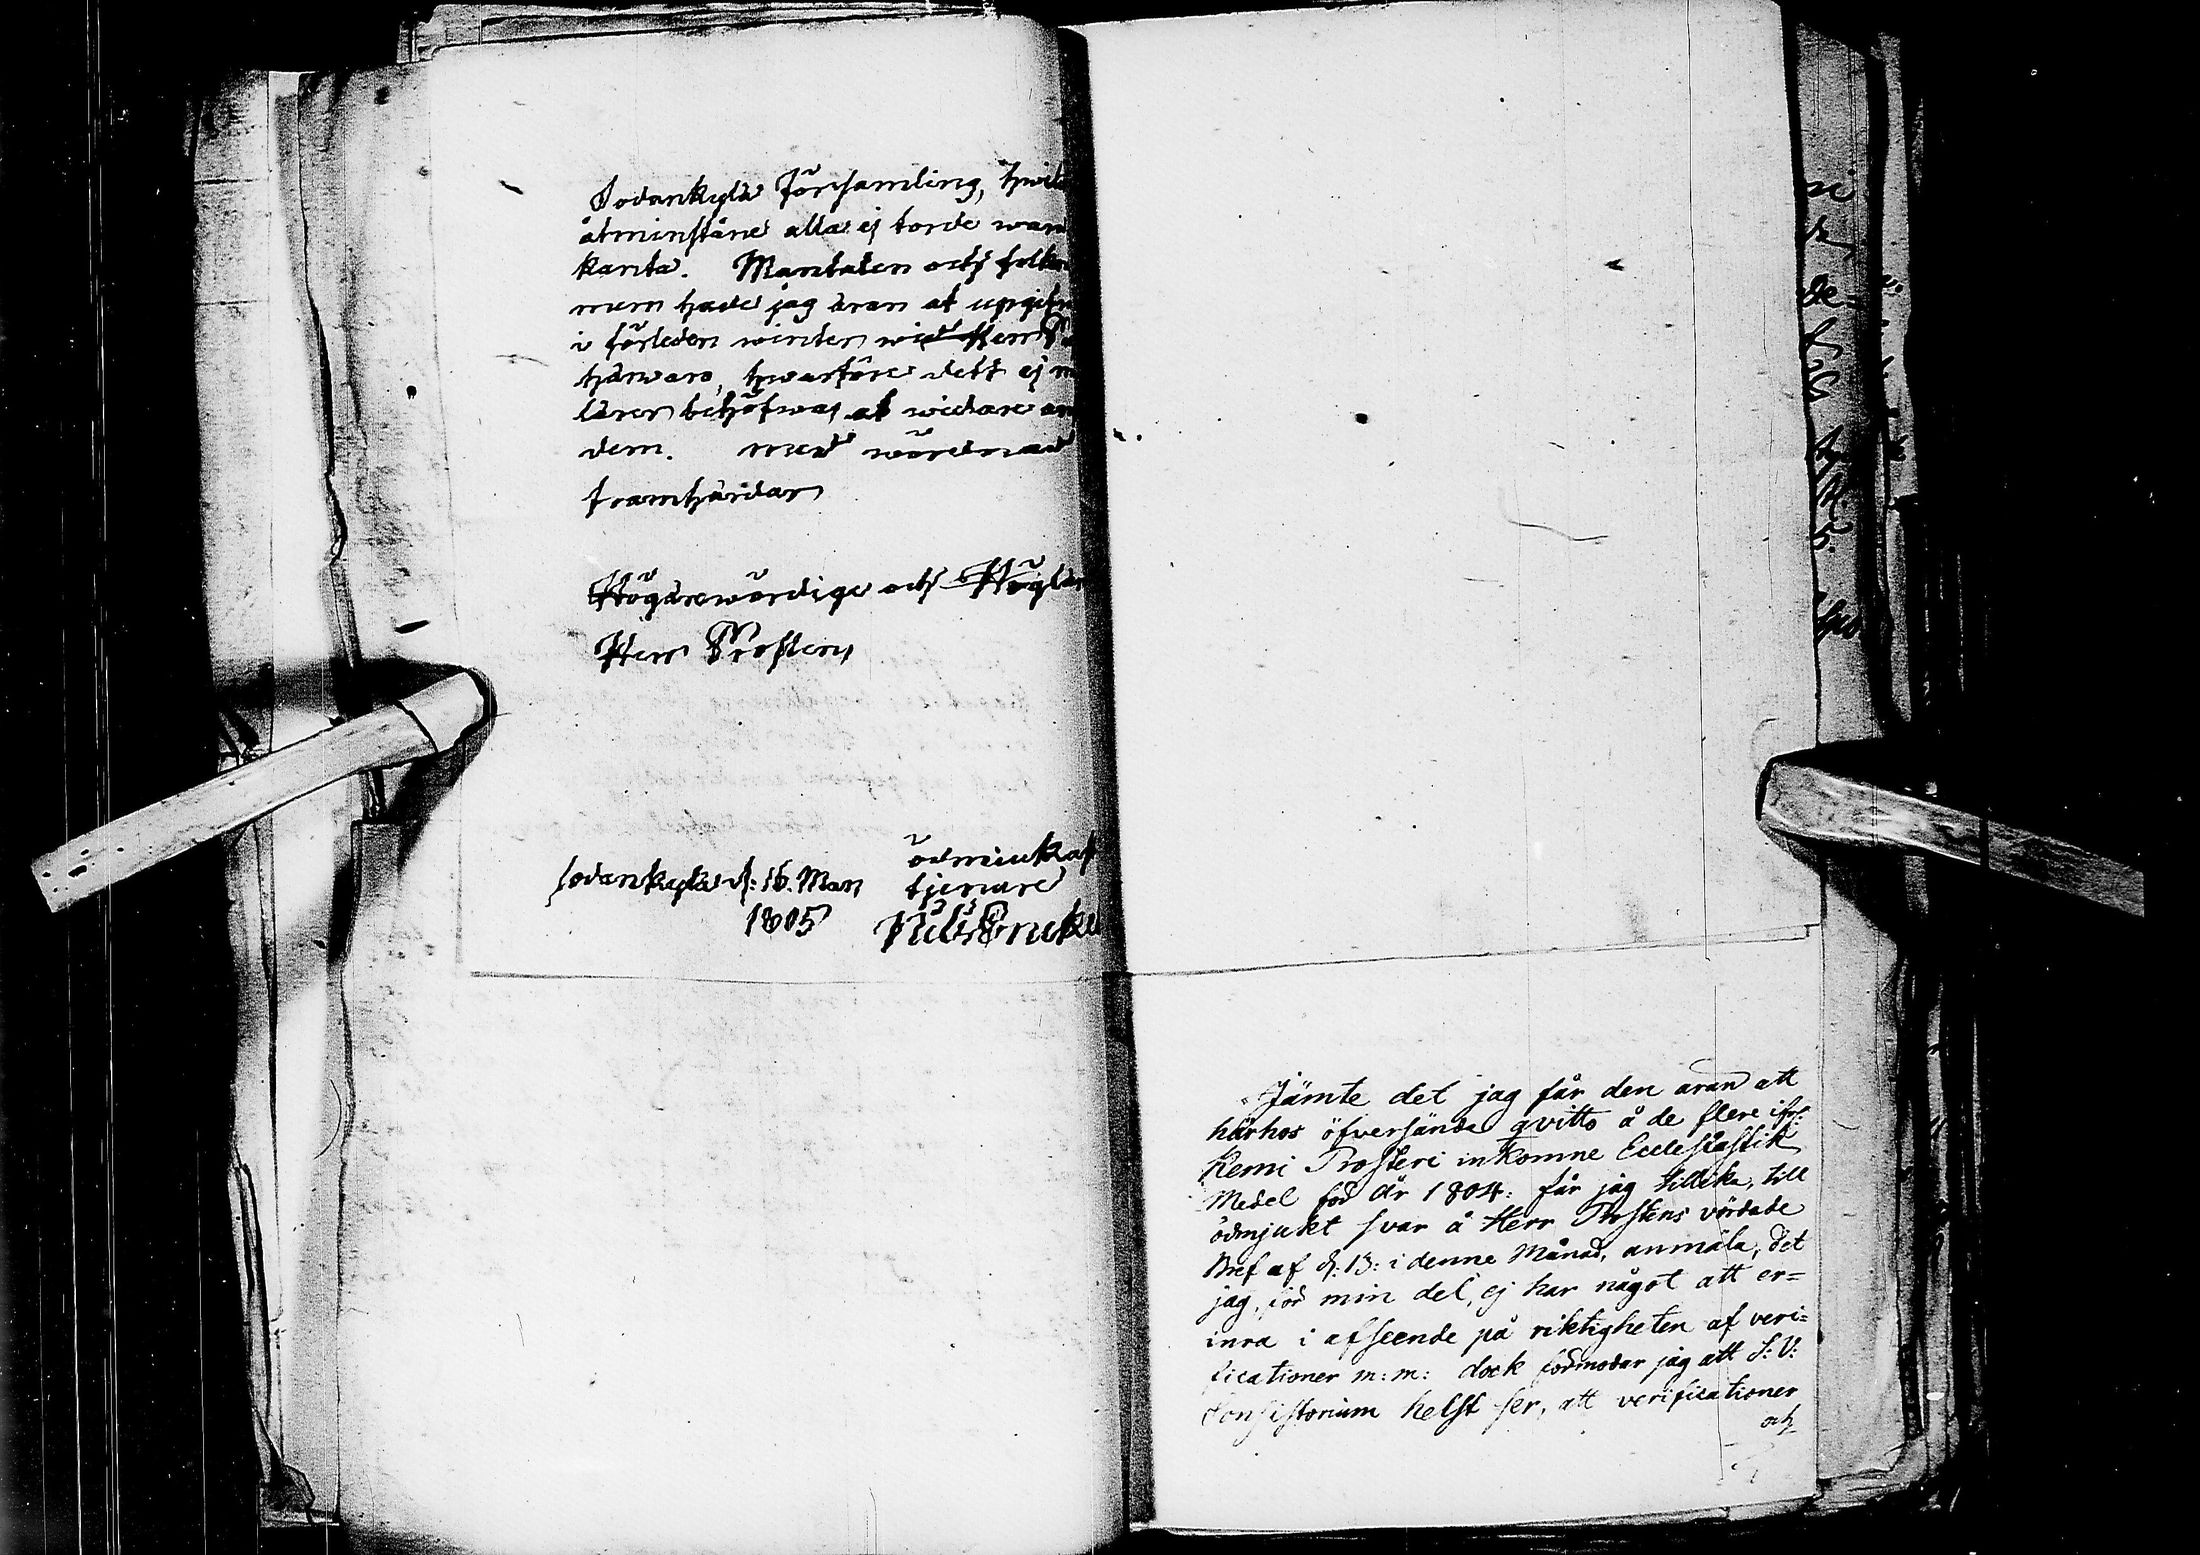 Sodankylä Församling, hwil
åtminstone alla ej torde wara
kanta. Mantalen och folkn
mern hade jag äran at upgifw
i förleden winter wid Herr P
härwaro, hwarföre dett ej m
lärer behöfwas at widare an
dem. med wördnad
framhärdar
Högärewördige och Höglär
Herr Prosten
ödmiukast
Sodankylä d: 16. Man tjenare
1805 Nils Fr
Jämte det jag får den äran att
härhos öfversända qvitto å de flere ifrå
Kemi Prosteri inkomne Ecclesiastik
Medel för år 1804: får jag tillika, till
ödmjukt svar å Herr Prostens vördade
Bref af d: 13: i denne Månad, anmäla, det
jag, för min del, ej har något att er=
inra i afseende på riktigheten af veri=
ficationer m: m: dock förmodar jag att S: V:
Consistorium helst ser, att verificationer
och